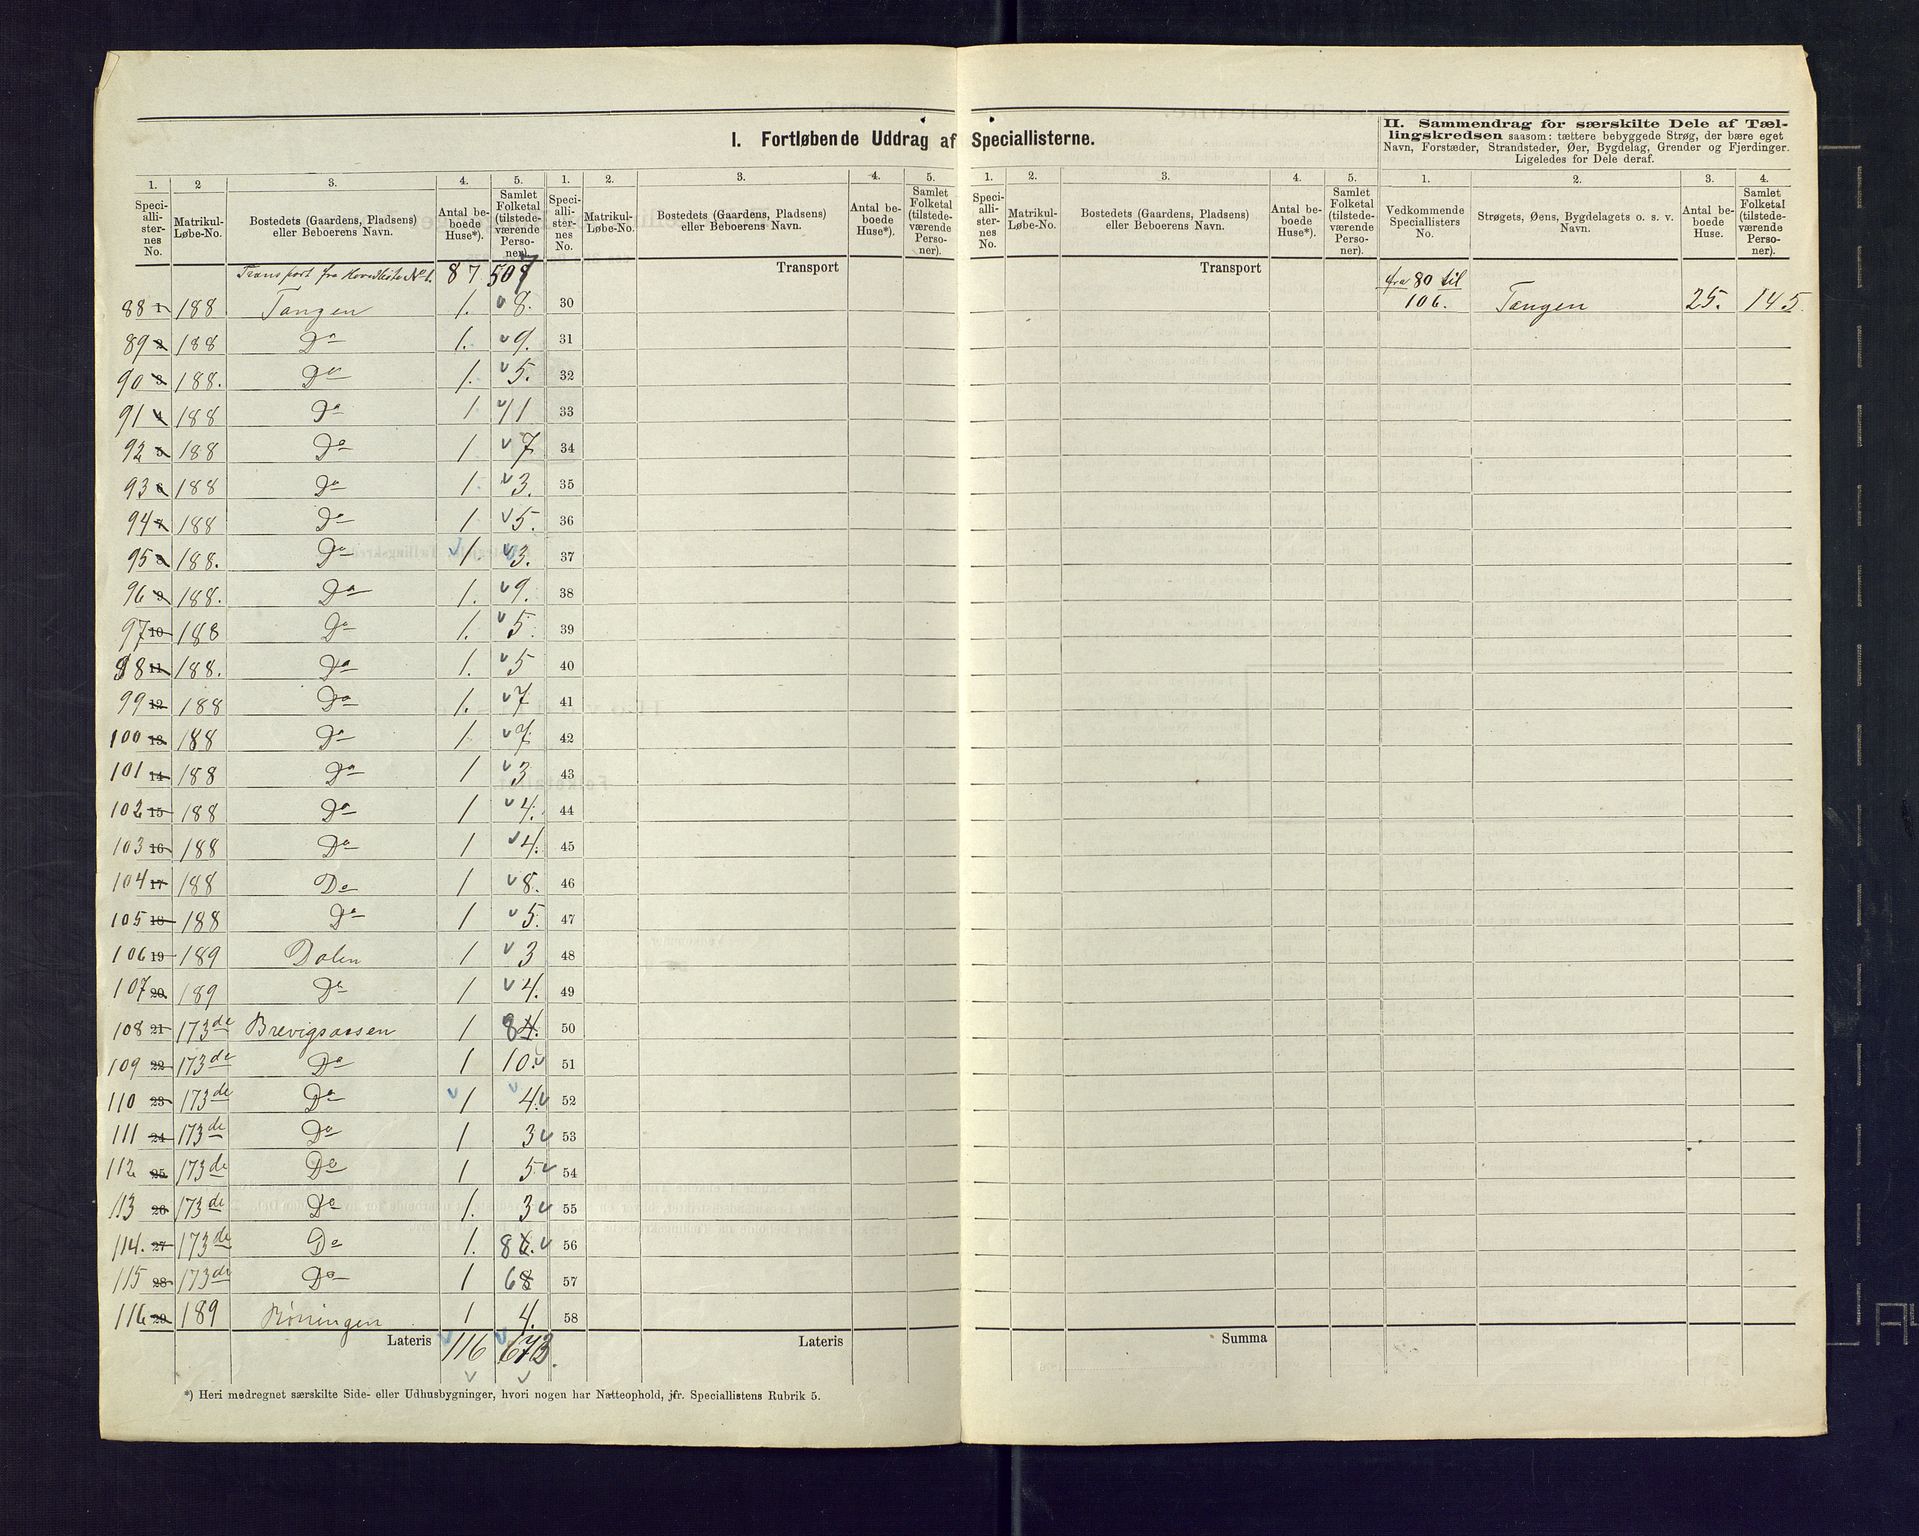 I. Fortløbende Uddrag af Speciallisterne.
II. Sammendrag for særskilte Dele af Tæl-
lingskredsen saasom: tættere bebyggede Strøg, der bære eget
Navn, Forstæder, Strandsteder, Øer, Bygdelag, Grender og Fjerdinger.
Ligeledes for Dele deraf.
1. 2 3. 4. 5. 1. 2. 3. 4. 5. 1. 2. 3. 4. 5. 1. 2. 3. 4.
Speci-allister-nes No. Matrikul-Løbe-No. Bostedets (Gaardens, Pladsens) eller Beboerens Navn. Antal be-boede Huse*). Samlet Folketal (tilstede-værende Perso-ner).
Speci-allister-nes No. Matrikul-Løbe-No. Bostedets (Gaardens, Pladsens) eller Beboerens Navn. Antal be-boede Huse*). Samlet Folketal (tilstede-værende Perso-ner).
Speci-allister-nes No. Matrikul-Løbe-No. Bostedets (Gaardens, Pladsens) eller Beboerens Navn. Antal be-boede Huse*). Samlet Folketal (tilstede-værende Perso-ner).
Vedkommende Speciallisters No. Strøgets, Øens, Bygdelagets o. s. v. Navn. Antal be-boede Huse. Samlet Folketal (tilstede-værende Perso-ner).
Transport fra Hovedliste No 1. 87 507 Transport Transport fra 80 til
88 1 188 Tangen 1. 8. 30 106. Tangen 25. 145
89 2 188 Do 1. 9. 31
90 3 188. Do 1. 5. 32
91 4 188 Do 1 11 33
92 5 188 Do 1 7 34
93 6 188 Do 1 3. 35
94 7 188 Do 1 5. 36
95 8 188. Do 1. 3. 37
96 9 188. Do 1. 9. 38
97 10 188 Do 1. 5. 39
98 11 188. Do 1. 5 40
99 12 188 Do 1. 7 41
100 13 188 Do 1 7. 42
101 14 188 Do 1 3 43
102 15 188 Do 1 4. 44
103 16 188 Do 1 4. 45
104 17 188 Do 1 8. 46
105 18 188 Do 1 5. 47
106 19 189 Dalen 1 3 48
107 20 189 Do 1 4. 49
108 21 173de Brevigsaasen 1 8 4. 50
109 22 173de Do 1 10. 51
110 23 173de Do 1 4. 52
111 24 173de Do 1 3 53
112 25 173de Do 1 5 54
113 26 173de Do 1. 3 55
114. 27 173de Do 1. 8 6. 56
115 28 173de Do 1 6 8 57
116 29 189 Røningen 1 4. 58
Lateris 116 673. Lateris Summa
*) Heri medregnet særskilte Side- eller Udhusbygninger, hvori nogen har Natteophold, jfr. Speciallistens Rubrik 5.